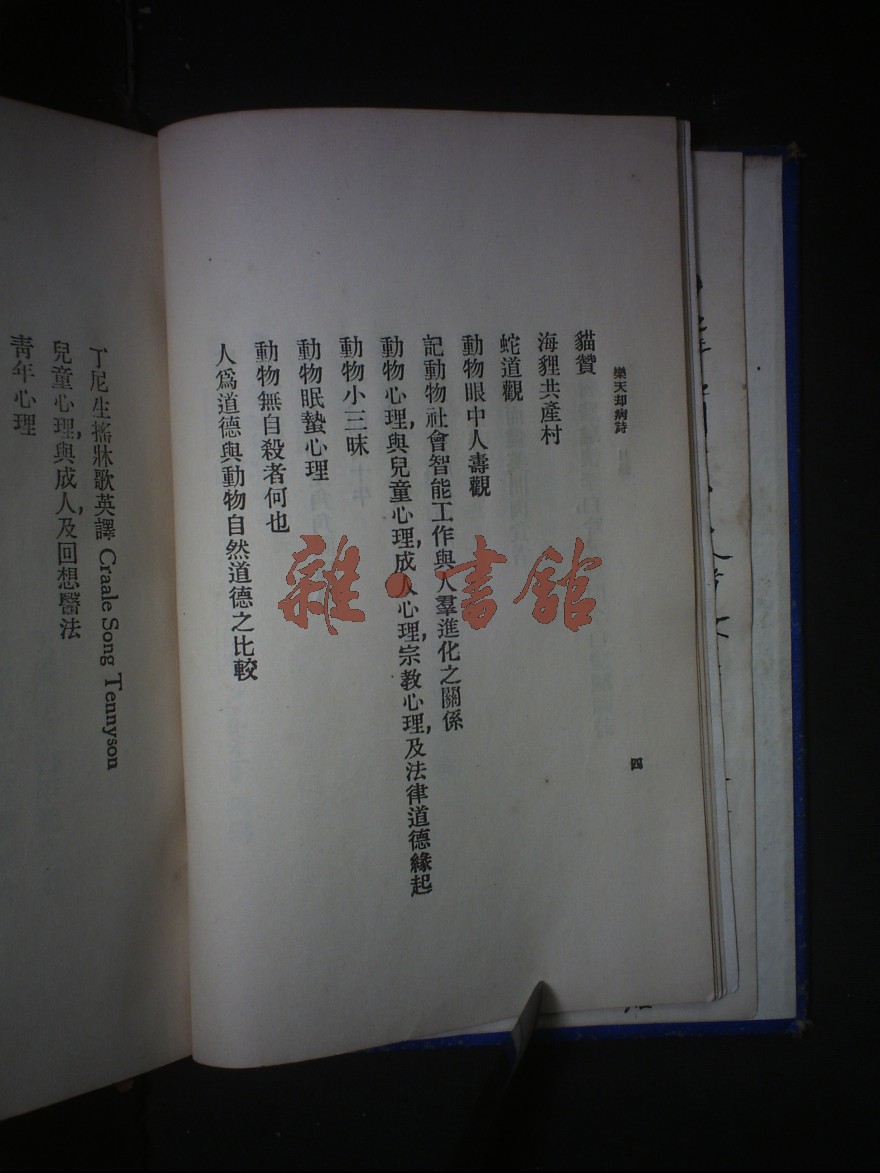 樂天却病詩
四
貓贊
海貍共產村
蛇道觀
動物眼中人壽觀
記動物社會智能工作與人羣進化之關係
動物心理,與兒童心理,成人心理,宗教心理,及法律道德緣起
動物小三昧
動物眠蟄心理
動物無自殺者何也
人爲道德與動物自然道德之比較
丁尼生搖牀歌英譯 Craale Song Tennyson
兒童心理,與成人,及回想醫法
青年心理
雜·書館